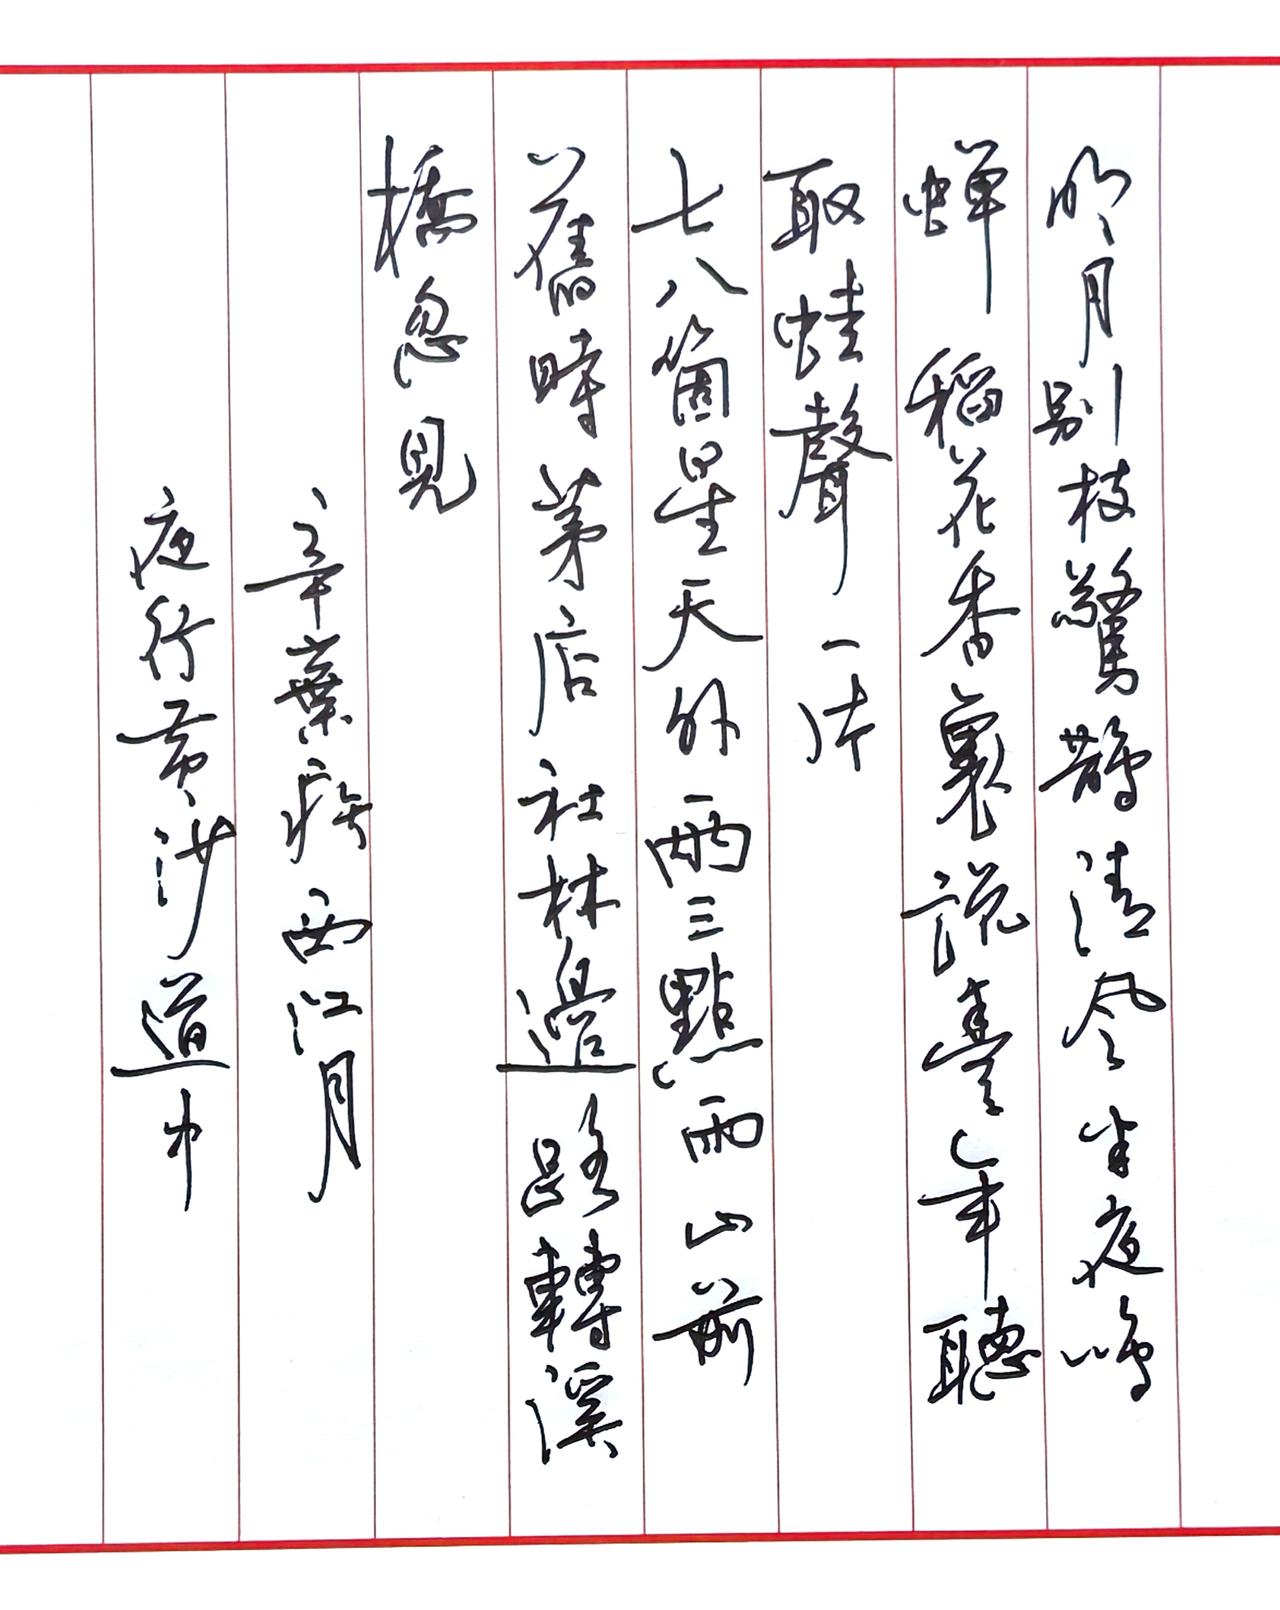 明月别枝驚鵲清風半夜鳴
蟬稻花香裏説豊年聽
取蛙聲一片
七八箇星天外兩三點雨山前
舊時茅店社林邊路轉溪
橋忽見
辛棄疾西江月
夜行黄沙道中